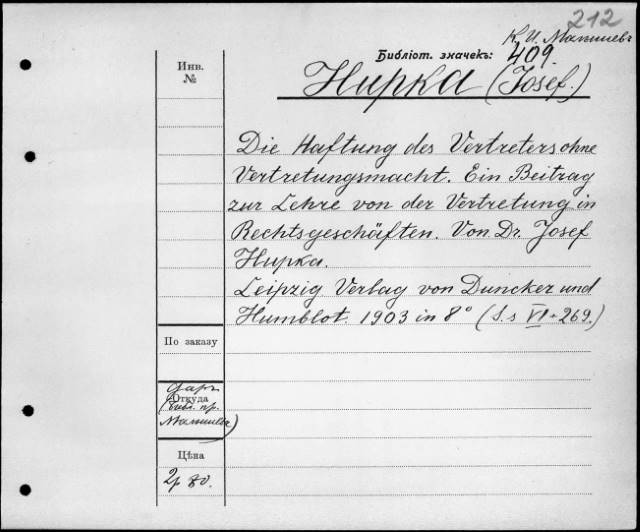 212
К. И. Малышевъ
Библіот. значекъ: 409
Hupka (Josef.)
Инв.
№
Die Haftung des Vertreters ohne
Vertretungsmacht. Ein Beitrag
zur Lehre von der Vertretung in
Rechtsgeschäften. Von Dr. Josef
Hupka.
Leipzig. Verlag von Duncker und
Humblot. 1903 in 8° (S.s VI + 269.)
По заказу
Даръ
Откуда
(Библ. пр.
Малышева)
Цѣна
2р 80.